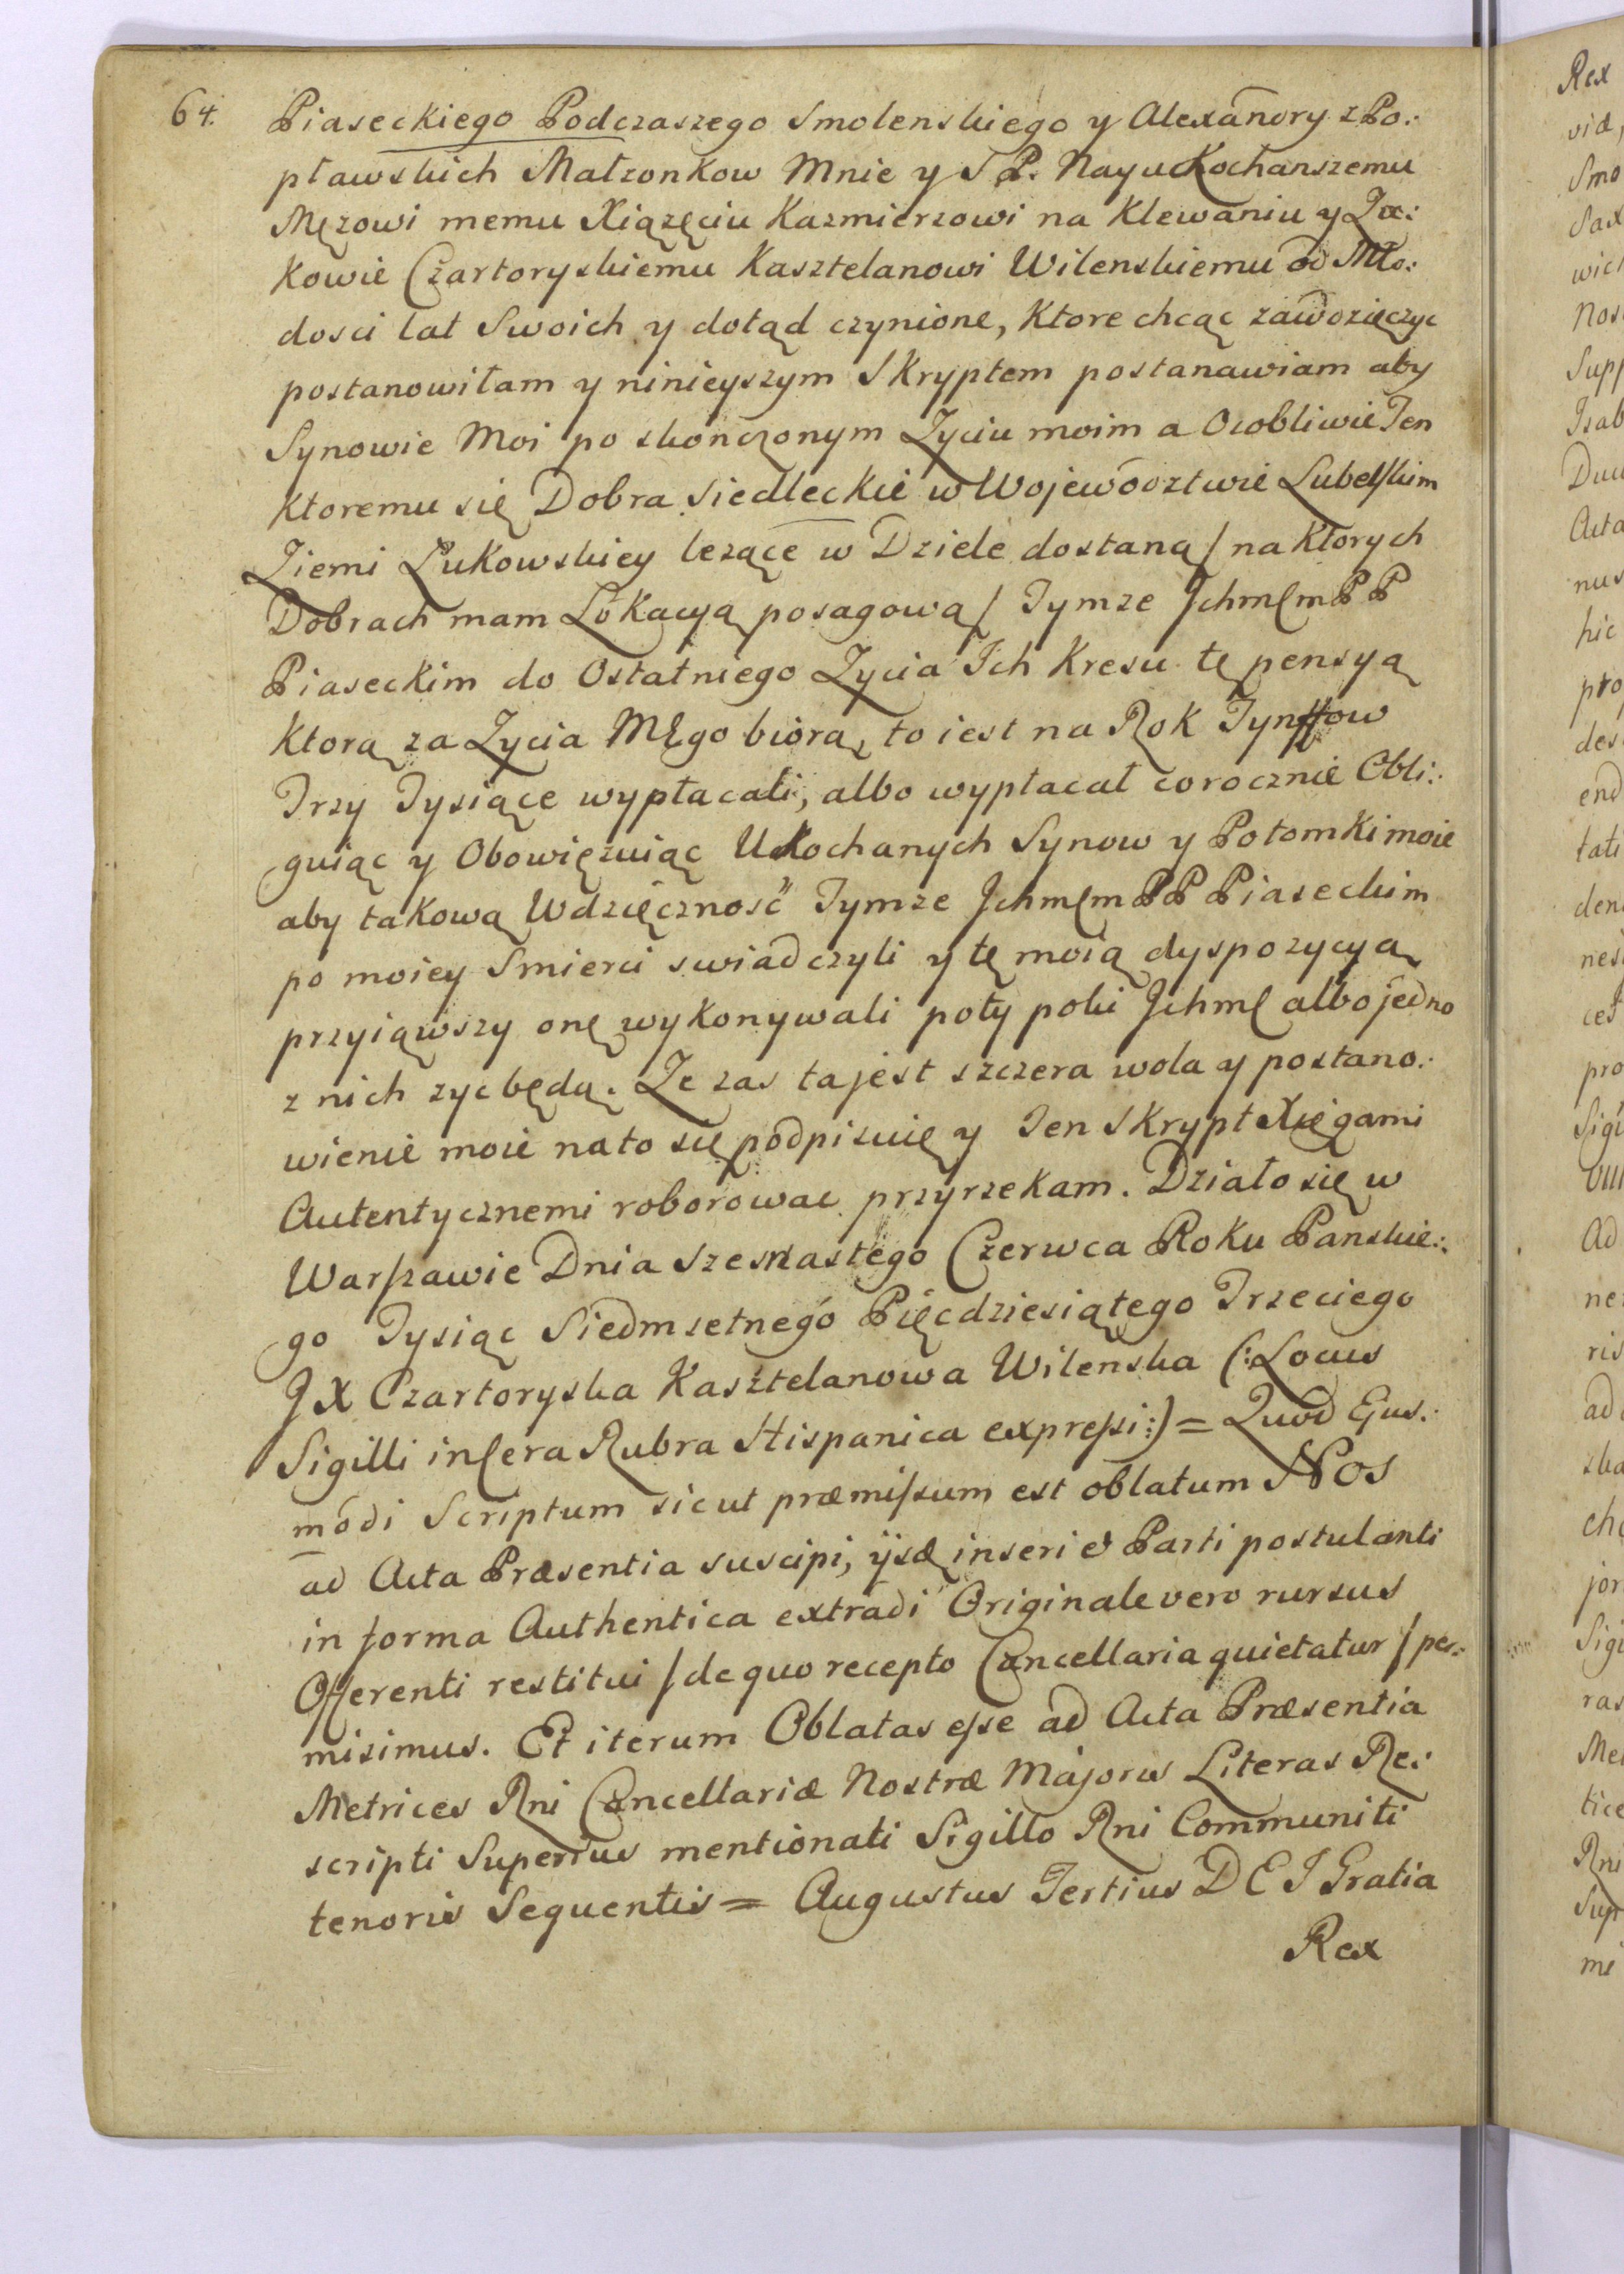 64.
Piaseckiego Podczaszego Smolenskiego y Alexandry z Po:
pławskich Małzonkow Mnie y S P. Nayukochanszemu
Męzowi memu Xiązęciu Kazmierzowi na Klewaniu y Zu:
kowie Czartoryskiemu Kasztelanowi Wilenskiemu od Mło:
dosci lat Swoich y dotąd czynione, Ktore chcąc zawdzięczyc
postanowiłam y ninieyszym Skryptem postanawiam aby
Synowie Moi po skonczonym Zyciu moim a Osobliwie Ten
Ktoremu się Dobra Siedleckie w Wojewodztwie Lubelskim
Ziemi Łukowskiey lezące w Dziele dostaną / na Ktorych
Dobrach mam Lokacyą posagową / Tymze Jchmſm PP
Piaseckim do Ostatniego Zycia Ich Kresu tę pensyą
Ktorą za Zycia Mego biorą, to iest na Rok Tynffow
Trzy Tysiące wypłacali, albo wypłacał corocznie Obli:
guiąc y Obowięzuiąc Ukochanych Synow y Potomki moie
aby takową Wdzięcznosć Tymze Jchmſm PP Piaseckim
po moiey Smierci swiadczyli y tę moią dyspozycyą
przyiąwszy onę wykonywali poty poki Jchmſ albo jedno
z nich zyc będą. Ze zas ta jest szczera wola y postano:
wienie moie na to się podpisuię y Ten Skrypt Xięgami
Autentycznemi roborowac przyrzekam. Działo się w
Warszawie Dnia Szesnastego Czerwca Roku Panskie:
go Tysiąc Siedmsetnego Pięcdziesiątego Trzeciego
J X Czartoryska Kasztelanowa Wilenska (: Locus
Sigilli in Cera Rubra Hispanica expressi :) = Quod Ejus:
modi Scriptum sicut præmissum est oblatum NOS
ad Acta Præsentia suscipi, ijsq inseri et Parti postulanti
in forma Authentica extradi Originale vero rursus
Offerenti restitui / de quo recepto Cancellaria quietatur / per:
misimus. Et iterum Oblatas esse ad Acta Præsentia
Metrices Rni Cancellariæ Nostræ Majoris Literas Re:
scripti Superius mentionati Sigillo Rni Communiti
tenoris Sequentis = Augustus Tertius DEI Gratia
Rex